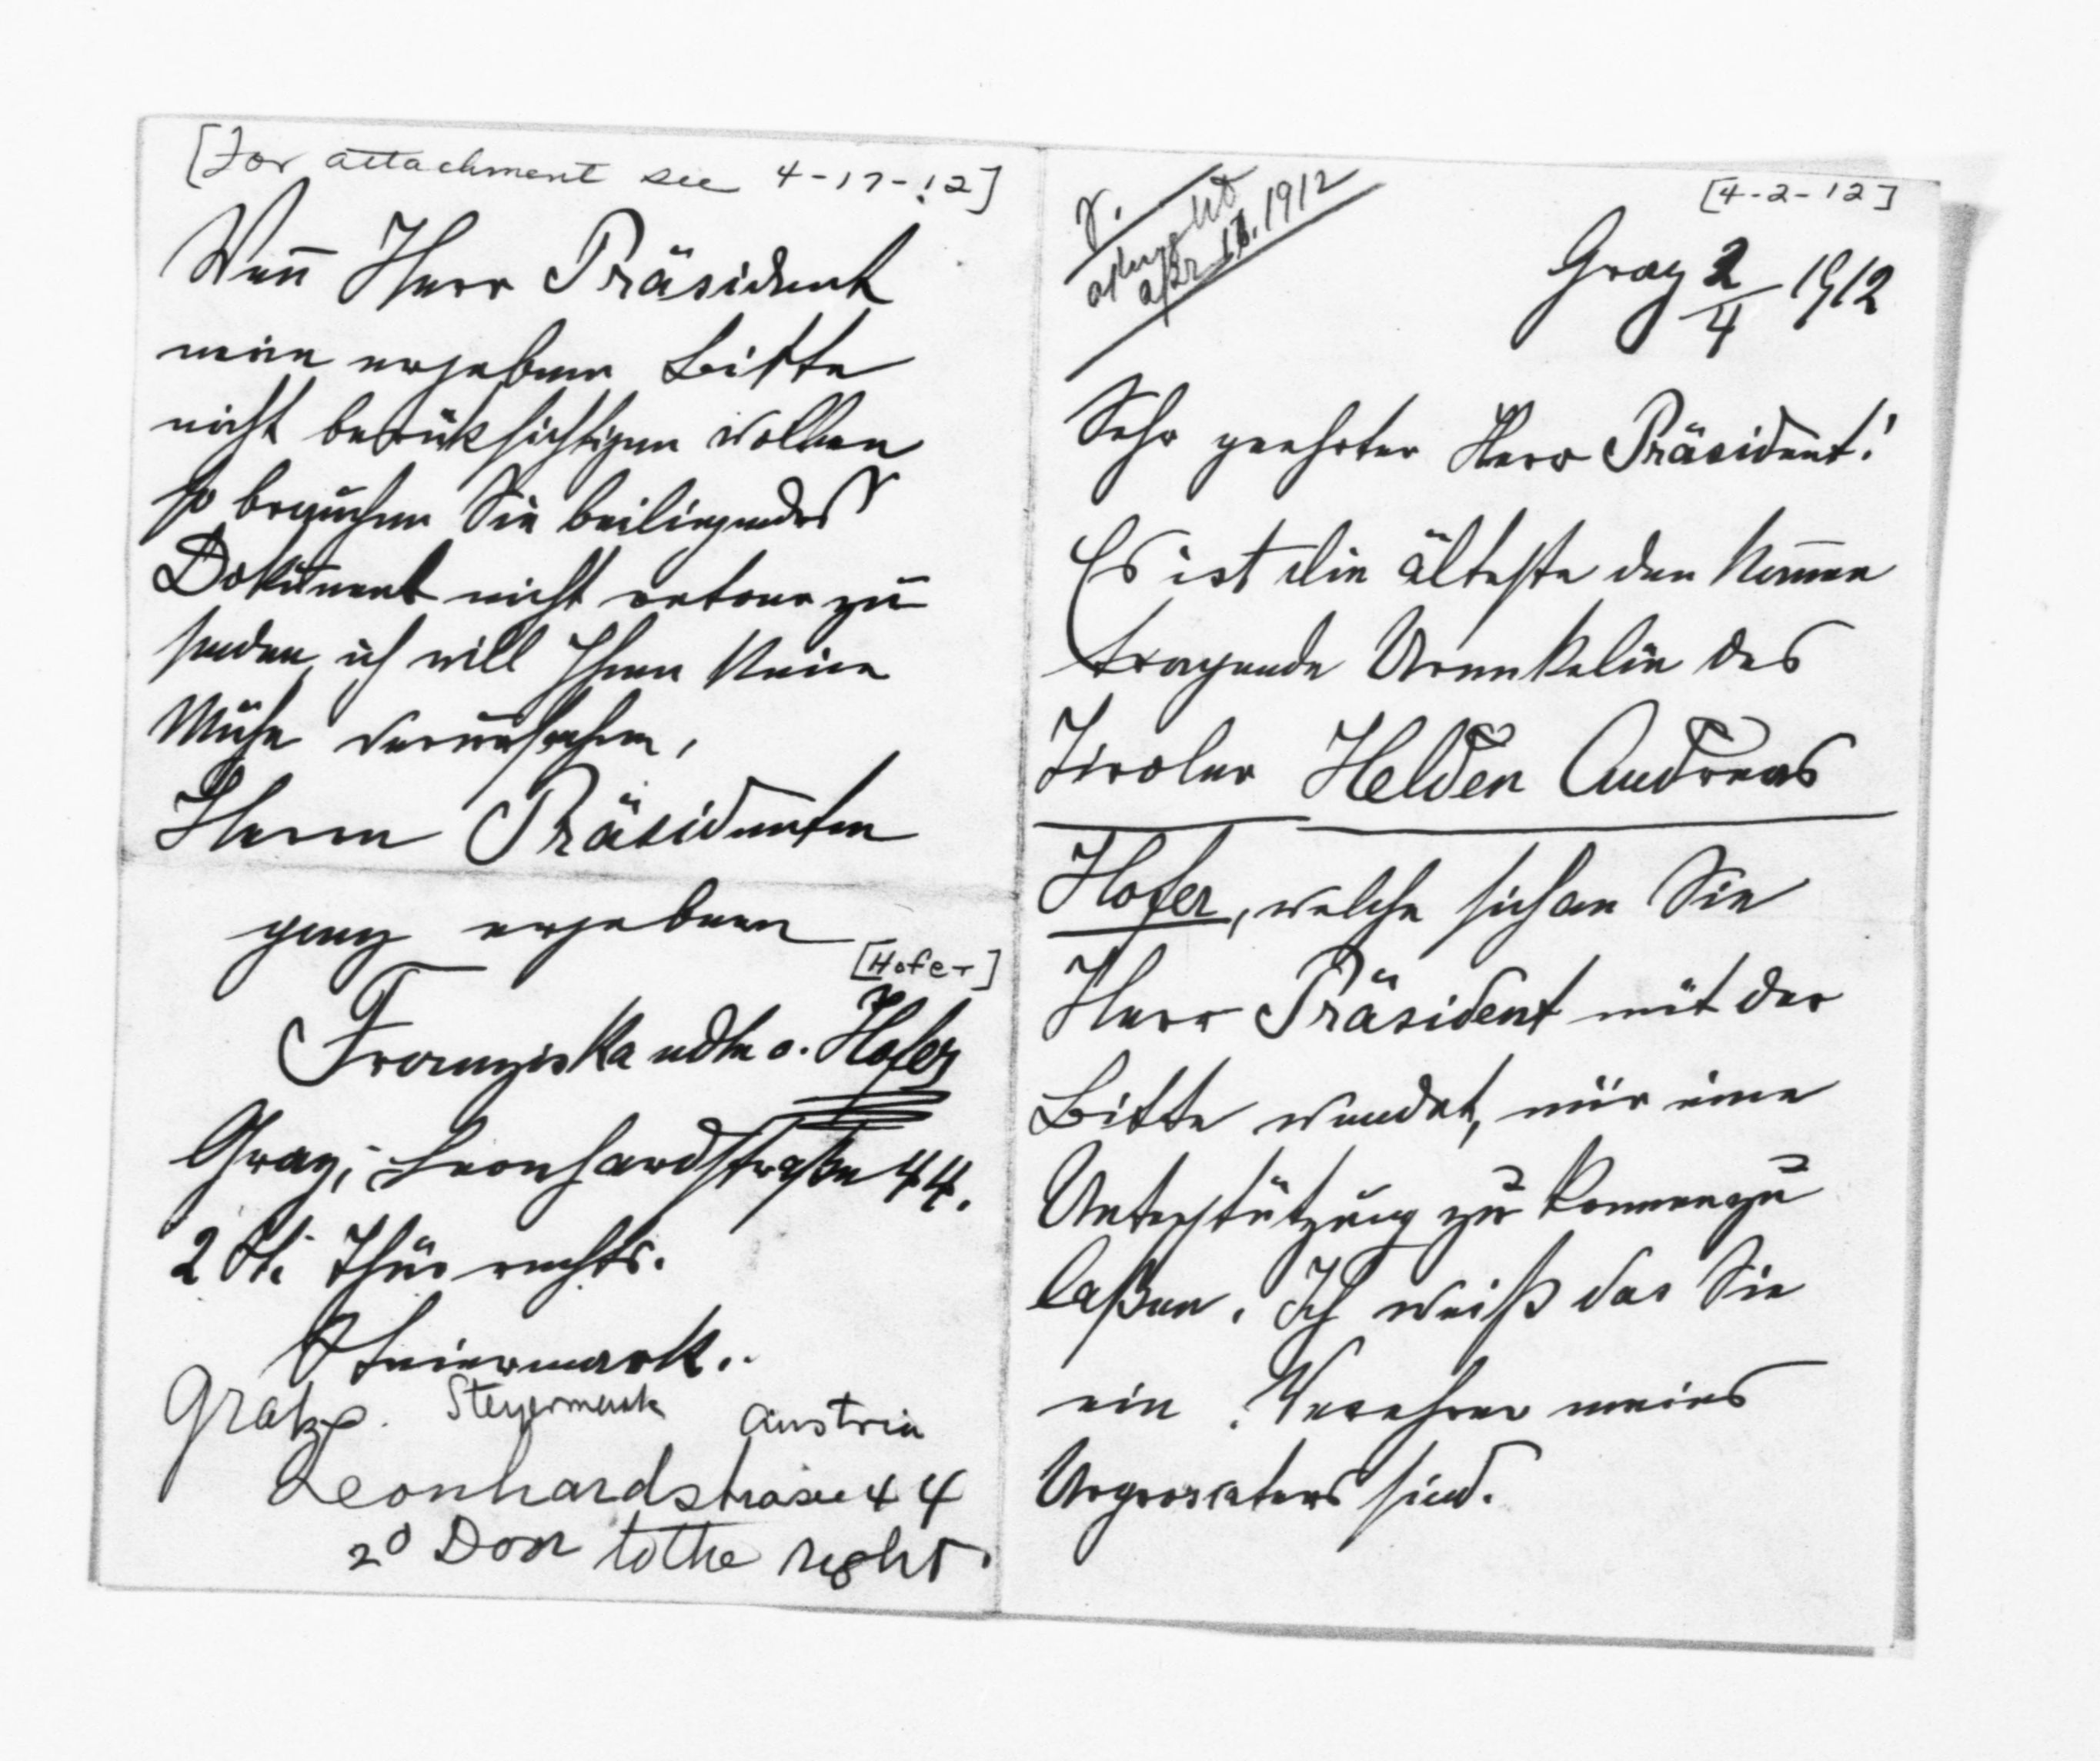 [For attachment see 4-17-12]
Wenn Herr Präsident
meine ergebene Bitte
nicht berüksichtigen wollen
so brauchen Sie beiliegendes
Dokument nicht retour zu
senden, ich will Ihnen keine
Mühe verursachen,
Herrn Präsidenten
ganz ergebene
[Hofer]
Franziska edle v. Hofer
Graz, Leonhardstraße 44.
2 St. Thür rechts.
Steiermark.
Gratz. Steyermark Austria
Leonhardstrasse 44
20 Door to the right.
Apr 17. 1912
[4-2-12]
Graz 2/4 1912
Sehr geehrter Herr Präsident!
Es ist die älteste den Namen
tragende Urenkelin des
Tiroler Helden Andreas
Hofer, welche sich an Sie
Herr Präsident mit der
Bitte wendet, mir eine
Unterstützung zu kommen zu
laßen. Ich weiß das Sie
ein Verehrer meines
Urgrosvaters sind.